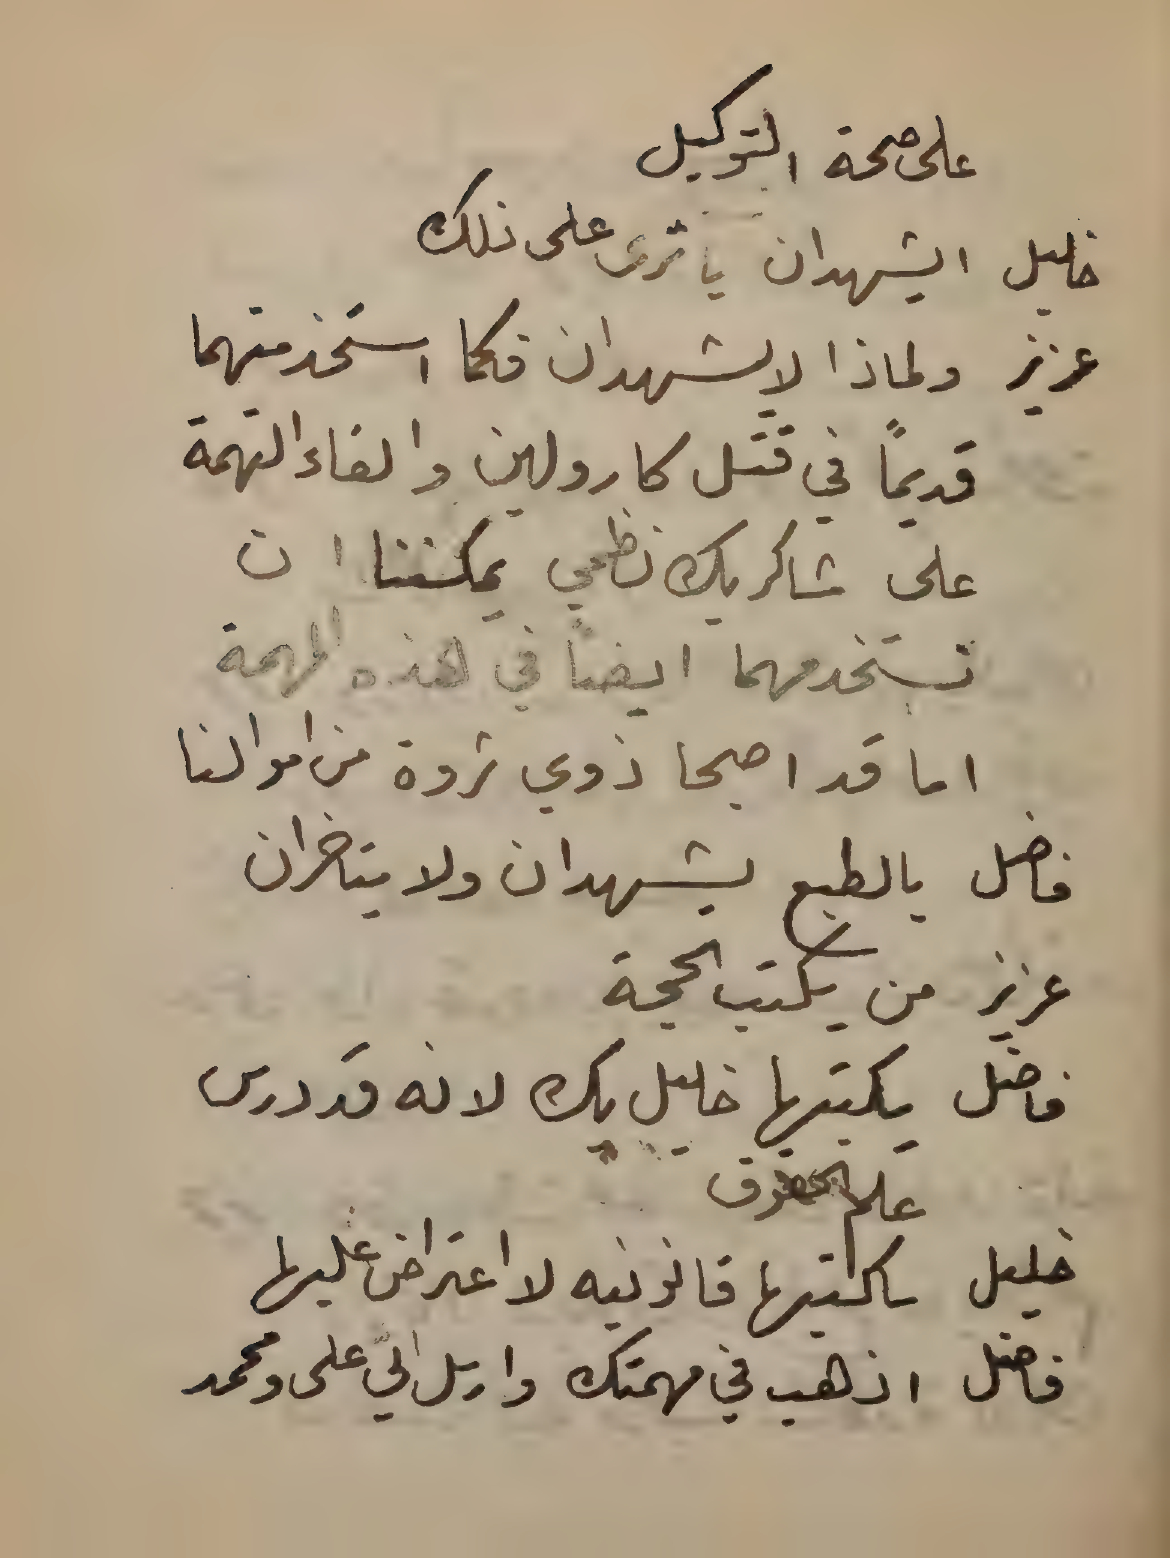 على صحة التوكيل
خليل ايشهدان يا ترى على ذلك
عزيز ولماذا لا يشهدان فكما استخدمتهما
قديماً في قتل كارولين والقاء التهمة
على شاكر بك نظمي يمكننا ان
نستخدمهما ايضاً في هذه المهمة
اما قد اصبحا ذوي ثروة من اموالنا
فاضل بالطبع يشهدان ولا يتاخران
عزيز من يكتب الحجة
فاضل يكتبها خليل بك لانه قد درس
علم الحقوق
خليل ساكتبها قانونيه لا اعتراض عليها
فاضل اذهب في مهمتك وارسل اليّ على ومحمد